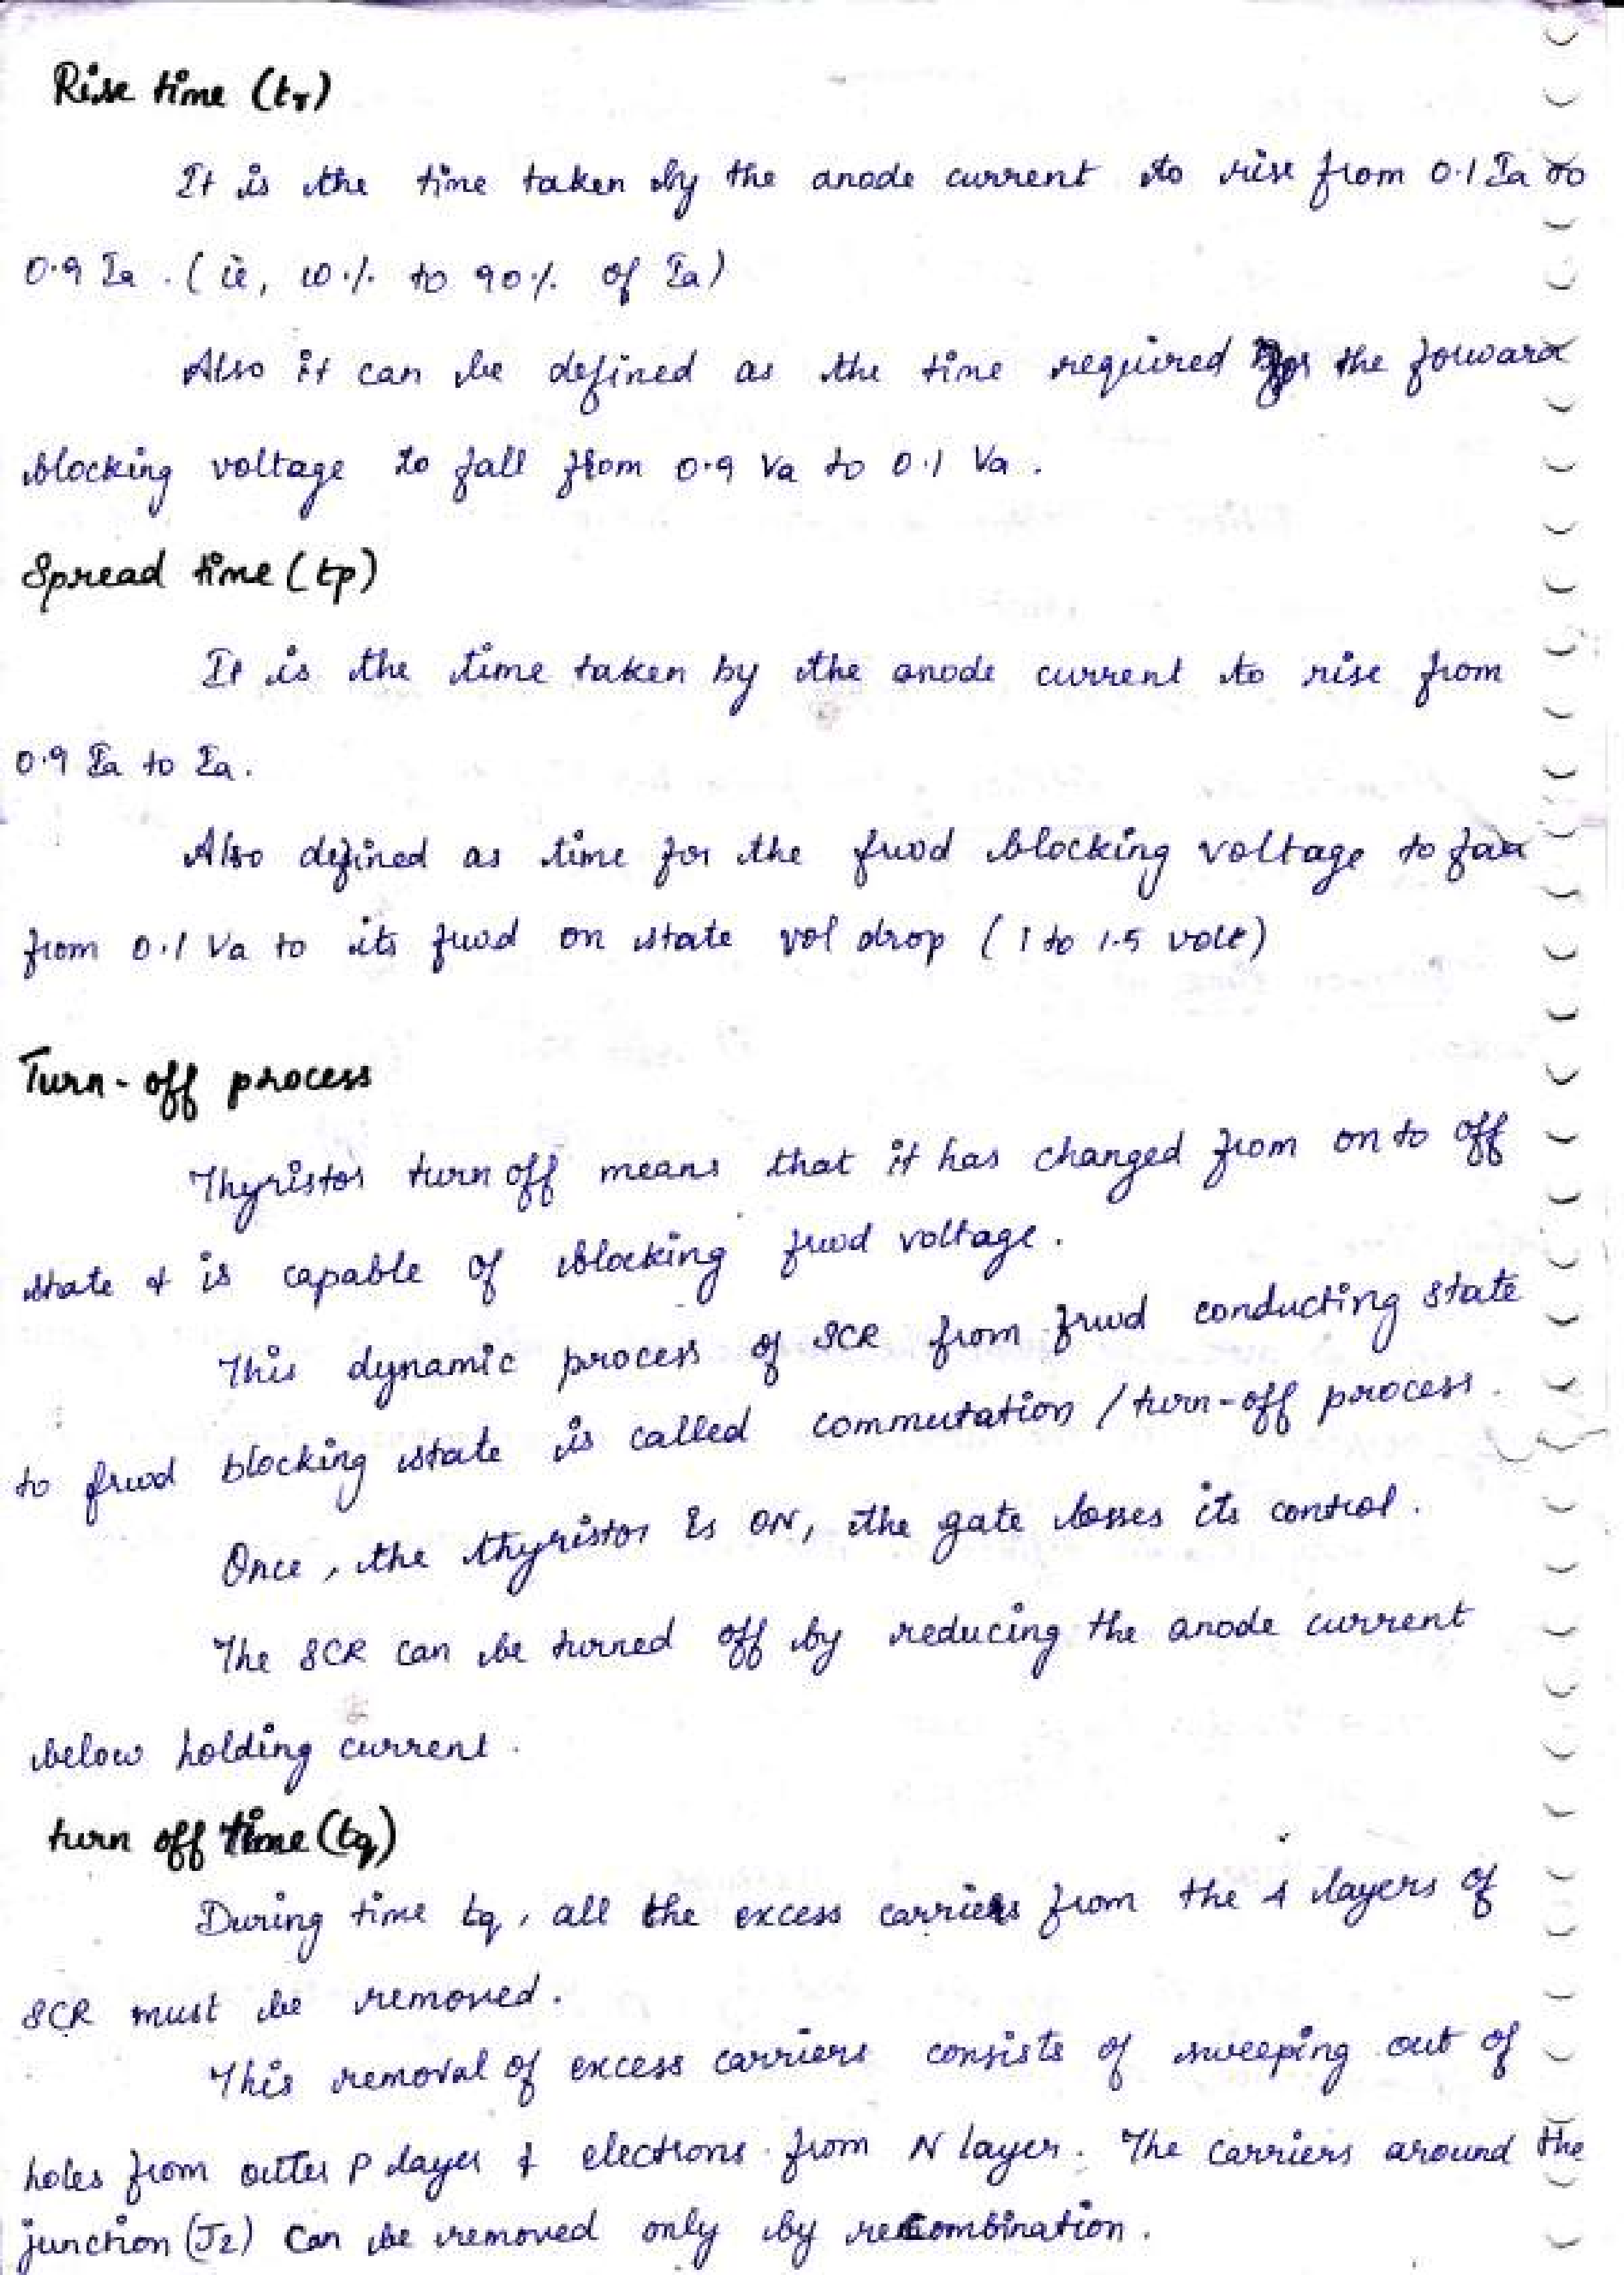 Rise time (tr)
It is the time taken by the anode current to rise from 0.1 Ia to
0.9 Ia . (ie, 10% to 90% of Ia)
Also it can be defined as the time required for the forward
blocking voltage to fall from 0.9 Va to 0.1 Va .
Spread time (tp)
It is the time taken by the anode current to rise from
0.9 Ia to Ia.
Also defined as time for the frwd blocking voltage to fall
from 0.1 Va to its frwd on state vol drop (1 to 1.5 volt)
Turn-off process
Thyristor turn off means that it has changed from on to off
state & is capable of blocking frwd voltage .
This dynamic process of SCR from frwd conducting state
to frwd blocking state is called commutation / turn-off process .
Once , the thyristor is ON, the gate losses its control .
The SCR can be turned off by reducing the anode current
below holding current .
turn off time (tq)
During time tq, all the excess carriers from the 4 layers of
SCR must be removed .
This removal of excess carriers consists of sweeping out of
holes from outer P layer & electrons from N layer . The carriers around the
junction (J2) can be removed only by recombination .